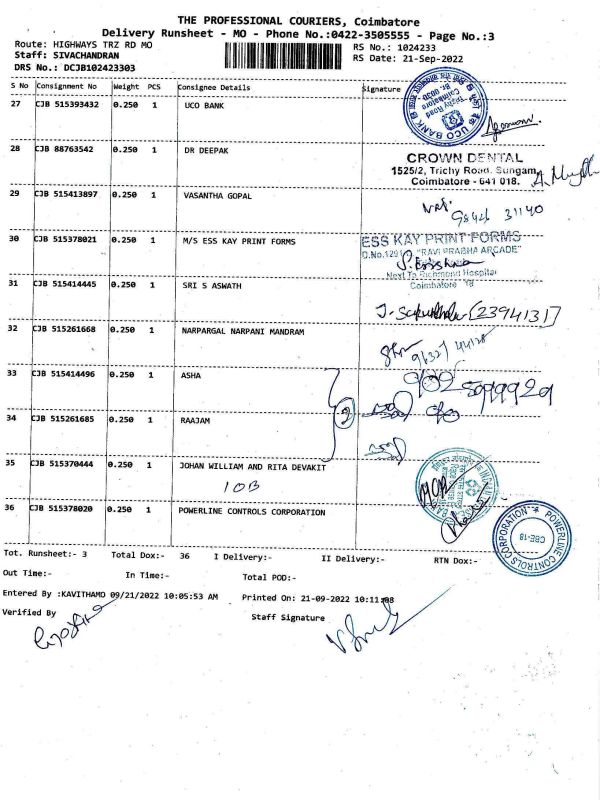 THE PROFESSIONAL COURIERS, Coimbatore
Delivery Runsheet - MO - Phone No.:0422-3505555 - Page No.:3
Route: HIGHWAYS TRZ RD MO
RS No.: 1024233
Staff: SIVACHANDRAN
RS Date: 21-Sep-2022
DRS No.: DCJB102423303
S No Consignment No Weight PCS Consignee Details Signature
27 CJB 515393432 0.250 1 UCO BANK
UCO BANK
Trichy Road
Coimbatore
28 CJB 88763542 0.250 1 DR DEEPAK
CROWN DENTAL
1525/2, Trichy Road, Sungam,
Coimbatore - 641 018.
29 CJB 515413897 0.250 1 VASANTHA GOPAL
31140
30 CJB 515378021 0.250 1 M/S ESS KAY PRINT FORMS
ESS KAY PRINT FORMS
"RAVI PRABHA ARCADE"
Next To Richmond Hospital
Coimbatore 18
31 CJB 515414445 0.250 1 SRI S ASWATH
[2394131]
32 CJB 515261668 0.250 1 NARPARGAL NARPANI MANDRAM
33 CJB 515414496 0.250 1 ASHA
2
34 CJB 515261685 0.250 1 RAAJAM
35 CJB 515370444 0.250 1 JOHAN WILLIAM AND RITA DEVAKIT
IOB
36 CJB 515378020 0.250 1 POWERLINE CONTROLS CORPORATION
POWERLINE CONTROLS CORPORATION
CBE-18
Tot. Runsheet:- 3 Total Dox:- 36 I Delivery:- II Delivery:- RTN Dox:-
Out Time:- In Time:- Total POD:-
Entered By :KAVITHAMO 09/21/2022 10:05:53 AM Printed On: 21-09-2022 10:11:08
Verified By
Staff Signature